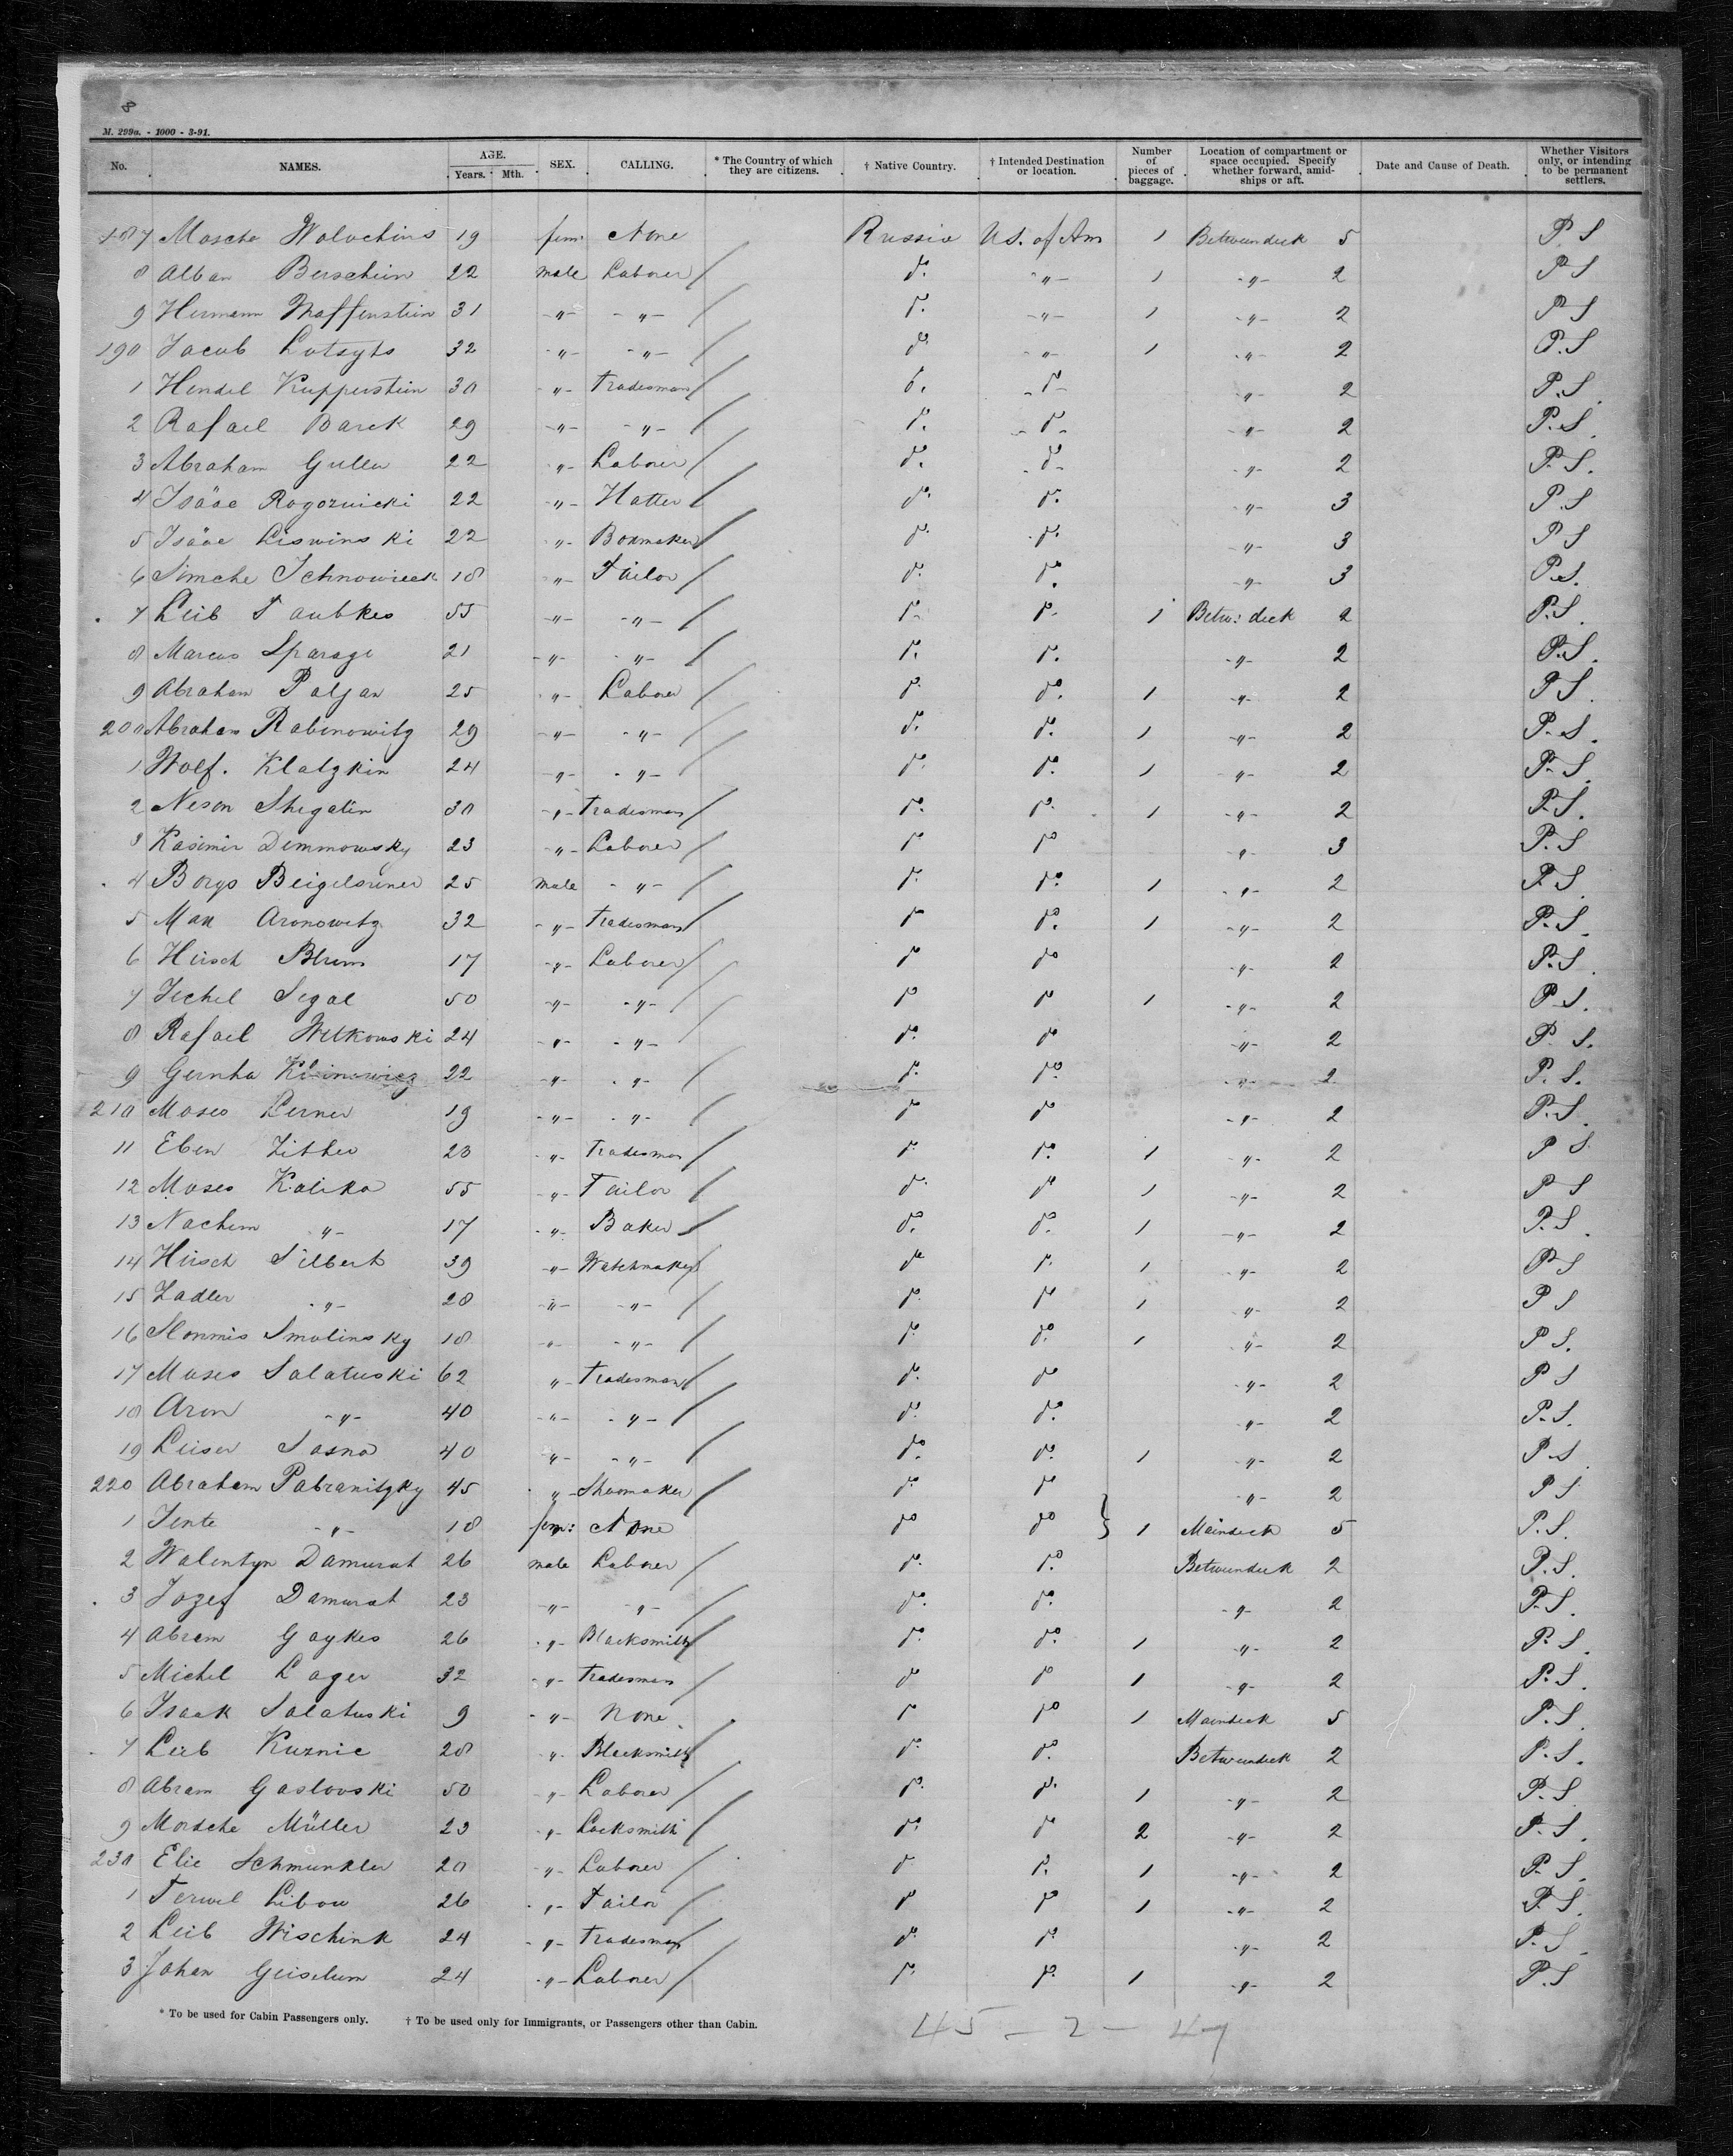 8
M. 299a. - 1000 - 3-91.
No. NAMES. AGE. Years. Mth. SEX. CALLING. * The Country of which they are citizens. † Native Country. † Intended Destination or location. Number of pieces of baggage. Location of compartment or space occupied. Specify whether forward, amidships or aft. Date and Cause of Death. Whether Visitors only, or intending to be permanent settlers.
187 Mosche Wolochins 19 fem: None Russia U.S. of Am 1 Betweendeck 5 P S
8 Alban Berschein 22 male Laborer / do. -"- 1 -"- 2 P S
9 Hermann Waffenstein 31 -"- -"- / do. -"- 1 -"- 2 P S
190 Jacob Lotsyts 32 -"- -"- / do. -"- 1 -"- 2 P.S
1 Hendel Kupperstein 30 -"- Tradesman / do. do. -"- 2 P.S.
2 Rafael Barck 29 -"- -"- / do. do. -"- 2 P.S.
3 Abraham Guller 22 -"- Laborer / do. do. -"- 2 P.S.
4 Isääc Rogoznicki 22 -"- Hatter / do. do. -"- 3 P.S
5 Isääc Liswinski 22 -"- Boxmaker / do. do. -"- 3 P S
6 Simche Ichnowieck 18 -"- Tailor / do. do. -"- 3 P.S.
7 Leib Taubkes 55 -"- -"- / do. do. 1 Betw: deck 2 P.S.
8 Marcus Sparage 21 -"- -"- / do. do. -"- 2 P.S.
9 Abraham Paljan 25 -"- Laborer / do. do. 1 -"- 2 P S.
200 Abraham Rabinowitz 29 -"- -"- / do. do. 1 -"- 2 P.S.
1 Wolf. Klatzkin 24 -"- -"- / do. do. 1 -"- 2 P.S.
2 Neson Shegalin 30 -"- Tradesman / do. do. 1 -"- 2 P.S.
3 Kasimir Demmowsky 23 -"- Laborer / do do -"- 3 P.S
4 Borys Beigelsuner 25 male -"- / do. do. 1 -"- 2 P.S.
5 Max Aronowitz 32 -"- Tradesman / do do. 1 -"- 2 P.S.
6 Hirsch Blum 17 -"- Laborer / do do -"- 2 P.S.
7 Jechel Segal 50 -"- -"- / do do 1 -"- 2 P.S.
8 Rafael Witkowski 24 -"- -"- / do. do -"- 2 P. S.
9 Gernha 22 -"- -"- do. do. -"- 2 P. S.
210 Moses Lerner 19 -"- -"- / do do -"- 2 P.S.
11 Eben Zither 23 -"- Tradesman / do. do. 1 -"- 2 P S.
12 Moses Kalika 55 -"- Tailor / do. do 1 -"- 2 P S
13 Nachem -"- 17 -"- Baker / do. do. 1 -"- 2 P.S.
14 Hirsch Silbert 39 -"- Watchmaker / do do. 1 -"- 2 P S
15 Zadler -"- 28 -"- -"- / do. do 1 -"- 2 P S
16 Slommis Smolinsky 18 -"- -"- / do. do. 1 -"- 2 P S.
17 Moses Salatuski 62 -"- Tradesman / do. do -"- 2 P S
18 Aron -"- 40 -"- -"- / do. do. -"- 2 P.S.
19 Leiser Sosna 40 -"- -"- / do. do. 1 -"- 2 P.S
220 Abraham Pabranitzky 45 -"- Shoemaker / do. do -"- 2 P S
1 Jente -"- 18 fem: None do do } 1 Maindeck 5 P.S.
2 Walentyn Damurat 26 male Laborer / do. do. Betweendeck 2 P.S.
3 Jozef Damurat 23 -"- -"- / do. do. -"- 2 P.S.
4 Abram Gaykes 26 -"- Blacksmith / do. do. 1 -"- 2 P.S.
5 Michel Lager 32 -"- Tradesman / do do 1 -"- 2 P.S.
6 Isaak Salatuski 9 -"- None do do 1 Maindeck 5 P.S.
7 Leib Kuznic 28 -"- Blacksmith / do. do. Betweendeck 2 P.S.
8 Abram Gaslovski 50 -"- Laborer / do. do. 1 -"- 2 P.S
9 Mordche Müller 23 -"- Locksmith / do. do 2 -"- 2 P.S.
230 Elie Schmunkler 20 -"- Laborer / do do. 1 -"- 2 P.S.
1 Terwel Libow 26 -"- Tailor / do do 1 -"- 2 P.S.
2 Leib Wischink 24 -"- Tradesman / do. do. -"- 2 P.S
3 Johan Geiselum 24 -"- Laborer / do. do. 1 -"- 2 P.S
* To be used for Cabin Passengers only. † To be used only for Immigrants, or Passengers other than Cabin.
45 - 2 - 47